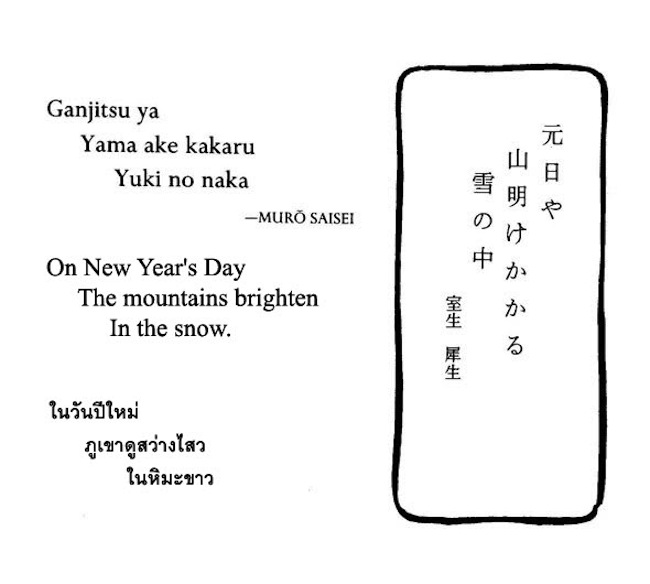 Ganjitsu ya
Yama ake kakaru
Yuki no naka
—MURŌ SAISEI
On New Year's Day
The mountains brighten
In the snow.
ในวันปีใหม่
ภูเขาดูสว่างไสว
ในหิมะขาว
元日や
山明けかかる
雪の中
室生 犀生